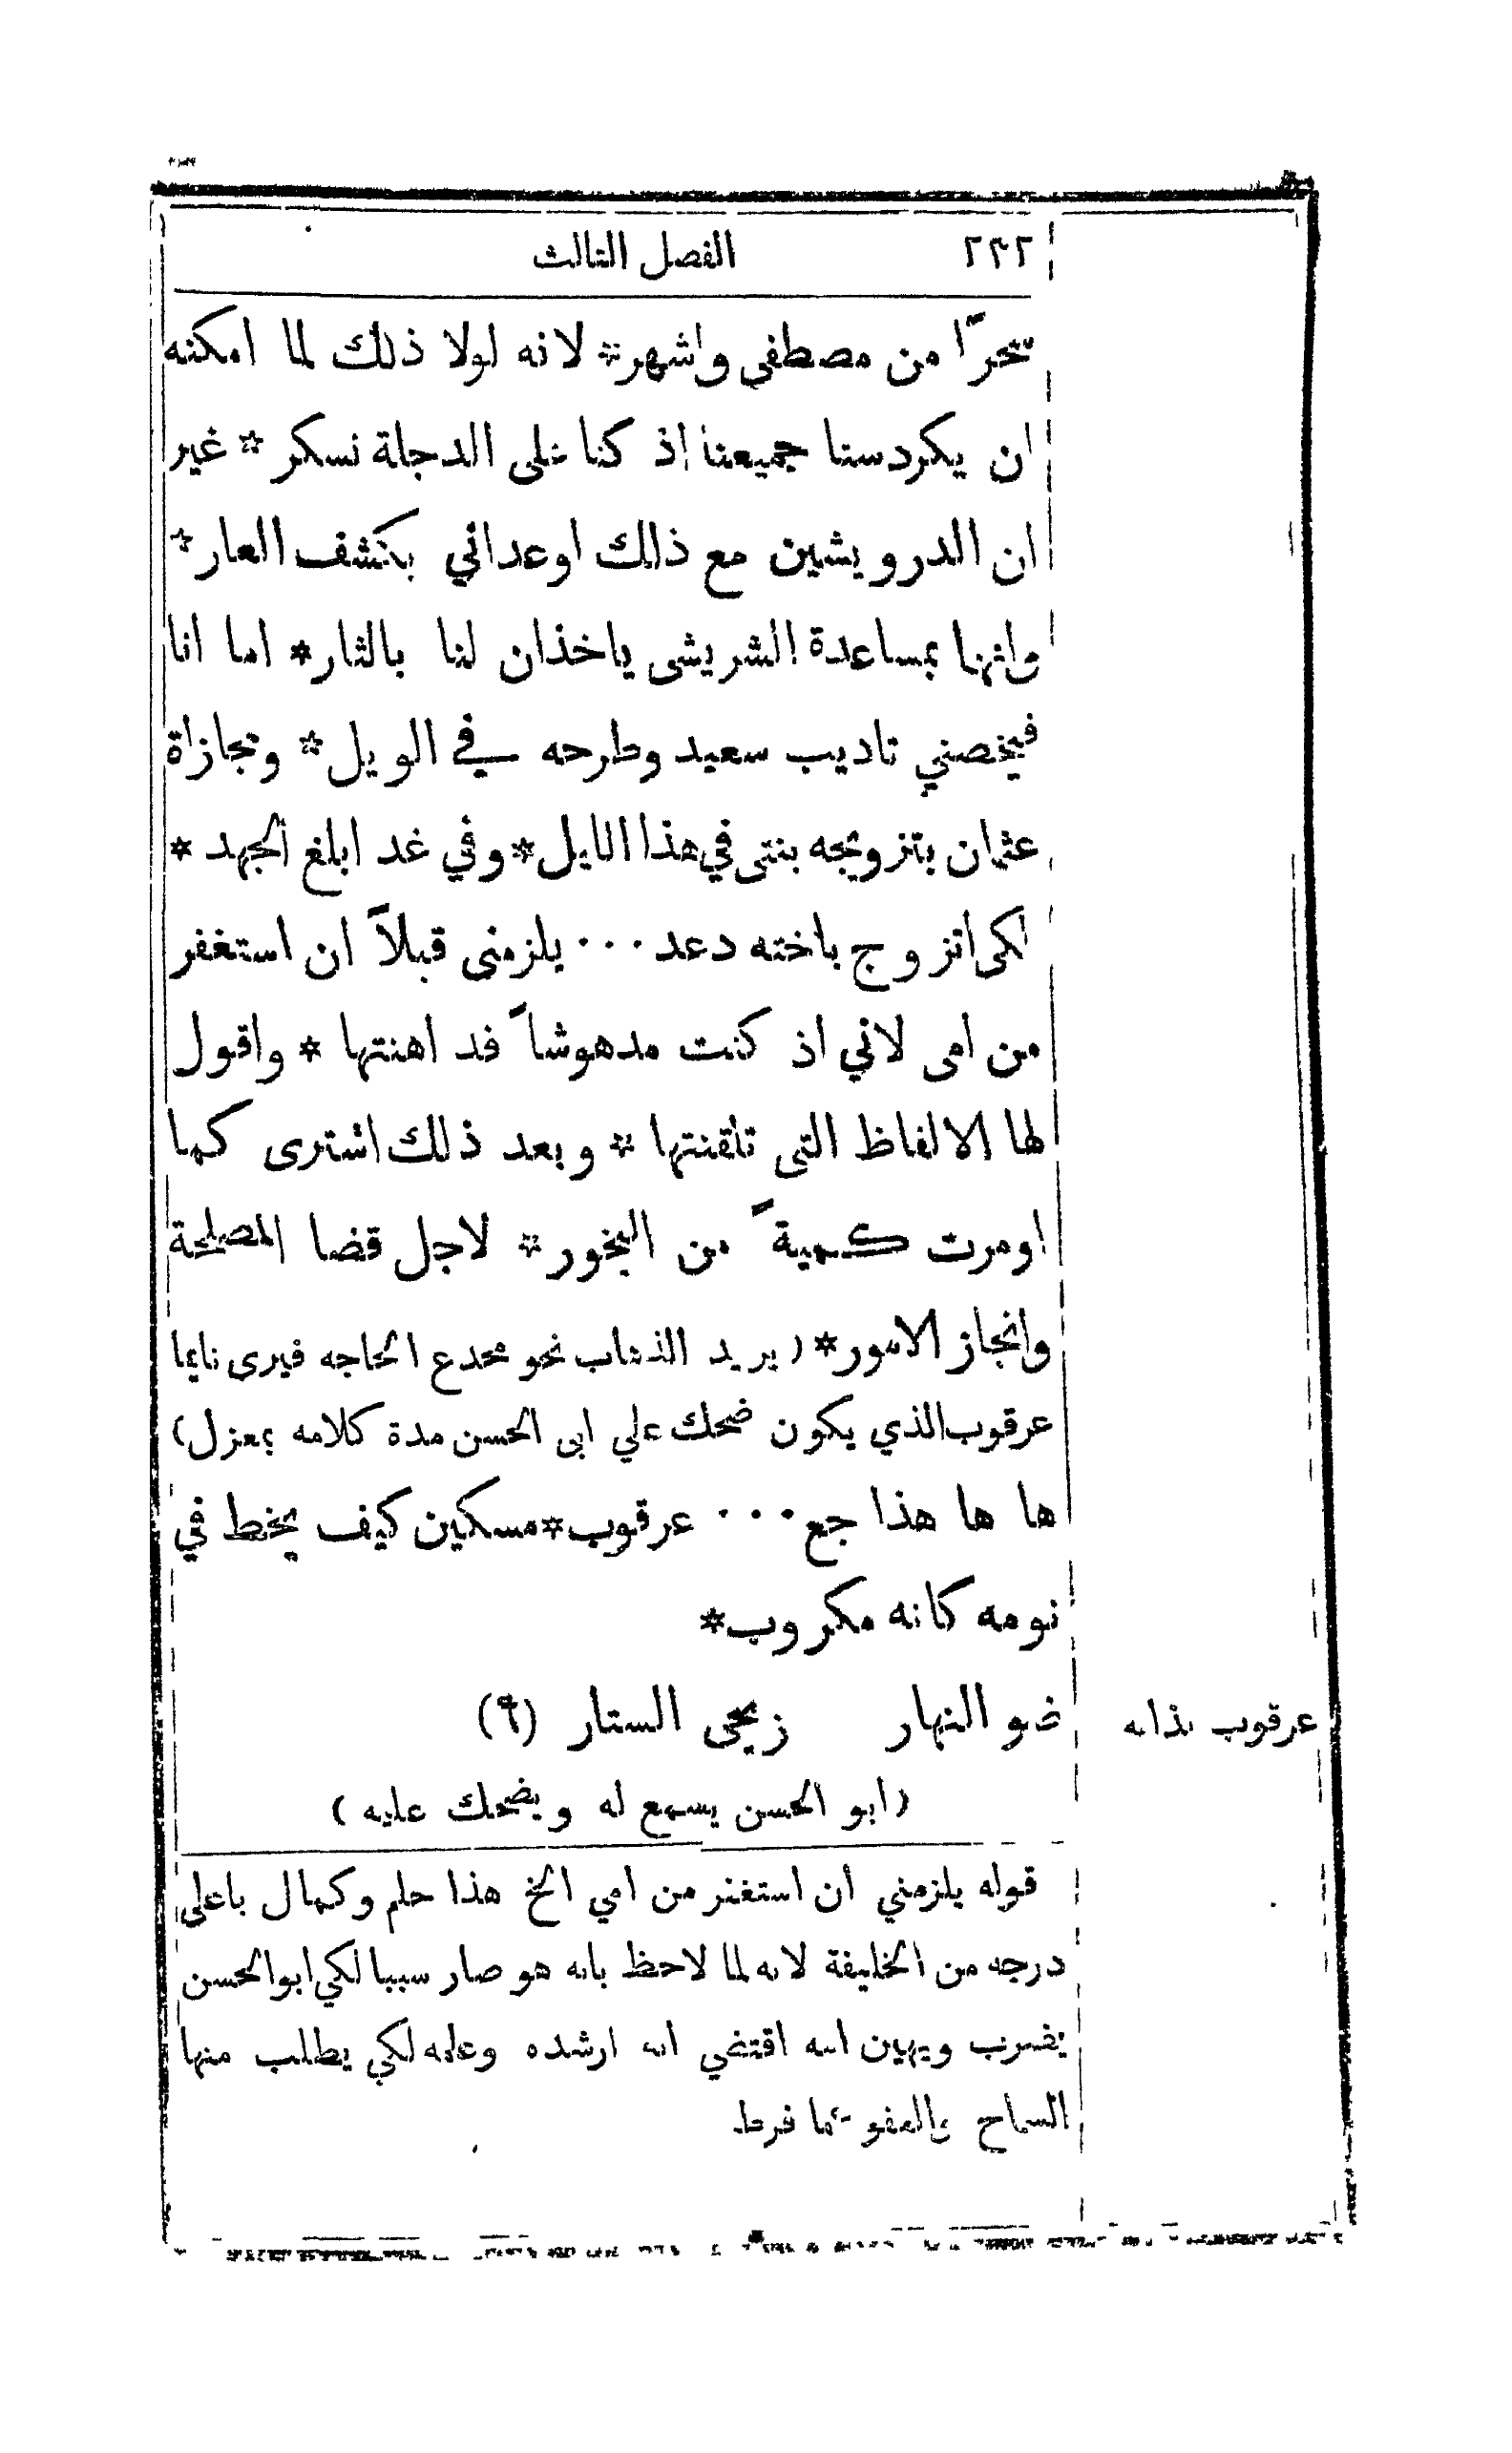 ٢٣٢ الفصل الثالث
تحرّا من مصطفى واشهر* لانه لولا ذلك لما امكنه
ان يكردسنا جميعنا اذ كنا على الدجلة نسكر * غير
ان الدرويشين مع ذلك اوعداني بكشف العار*
وانهما بمساعدة الشريشى ياخذان لنا بالثار* اما انا
فيخصني تاديب سعيد وطرحه في الويل * ومجازاة
عثمان بتزويجه بنتى في هذا الليل * وفي غد ابلغ الجهد *
لكى اتزوج باخته دعد ... يلزمنى قبلاً ان استغفر
من امى لاني اذ كنت مدهوشاً قد اهنتها * واقول
لها الالفاظ التى تلقنتها * وبعد ذلك اشترى كما
اومرت كمية ً من البخور* لاجل قضا المصلحة
وانجاز الامور* (يريد الذهاب نحو مخدع الحاجه فيرى نايما
عرقوب الذي يكون ضحك علي ابى الحسن مدة كلامه بمعزل)
ها ها هذا جع ... عرقوب*مسكين كيف يخط في
نومه كانه مكروب*
عرقوب بذاته ضو النهار زيحى الستار (٩)
(ابو الحسن يسمع له ويضحك عليه)
قوله يلزمني ان استغفر من امي الخ هذا حلم وكمال باعلى
درجه من الخليفة لانه لما لاحظ بانه هو صار سببا لكي ابو الحسن
يضرب ويهين امه اقتضي انه ارشده وعلمه لكي يطلب منها
السماح والعفو عما فرط